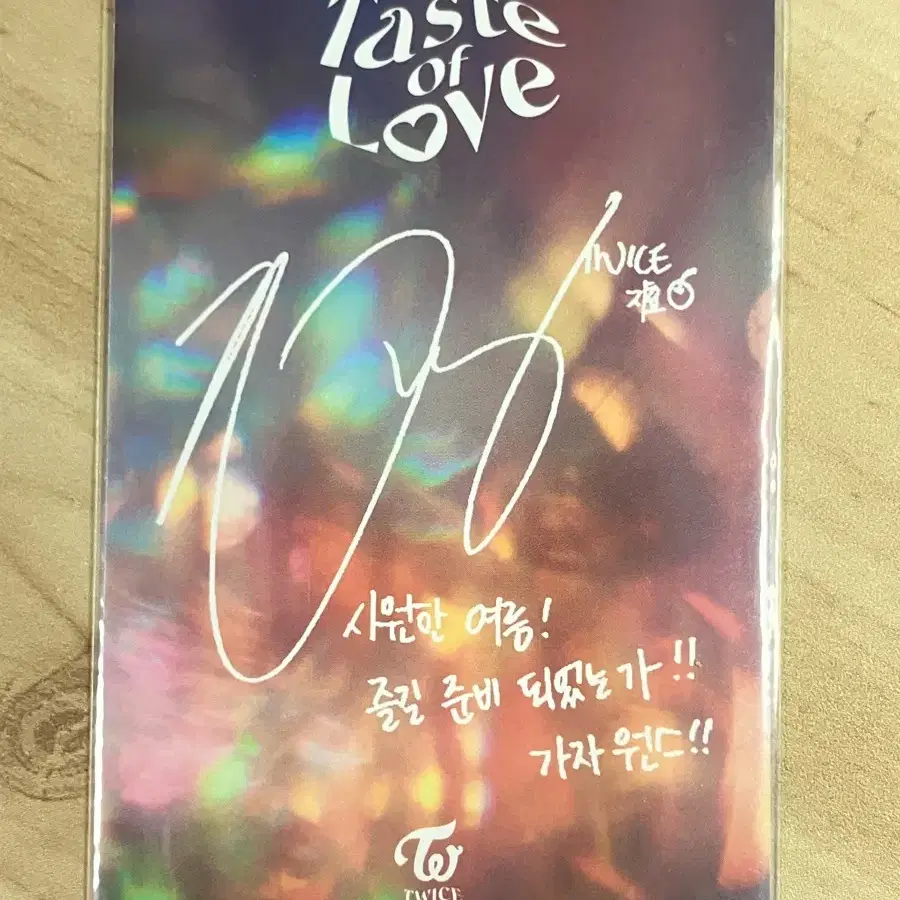 Taste
of
Love
TWICE
시원한 여름!
즐길 준비 되었는가!!
가자 원스!!
TWICE